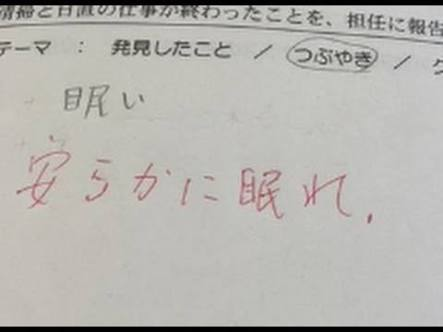 清掃と日直の仕事が終わったことを、担任に報告
テーマ : 発見したこと / つぶやき /
眠い
安らかに眠れ.